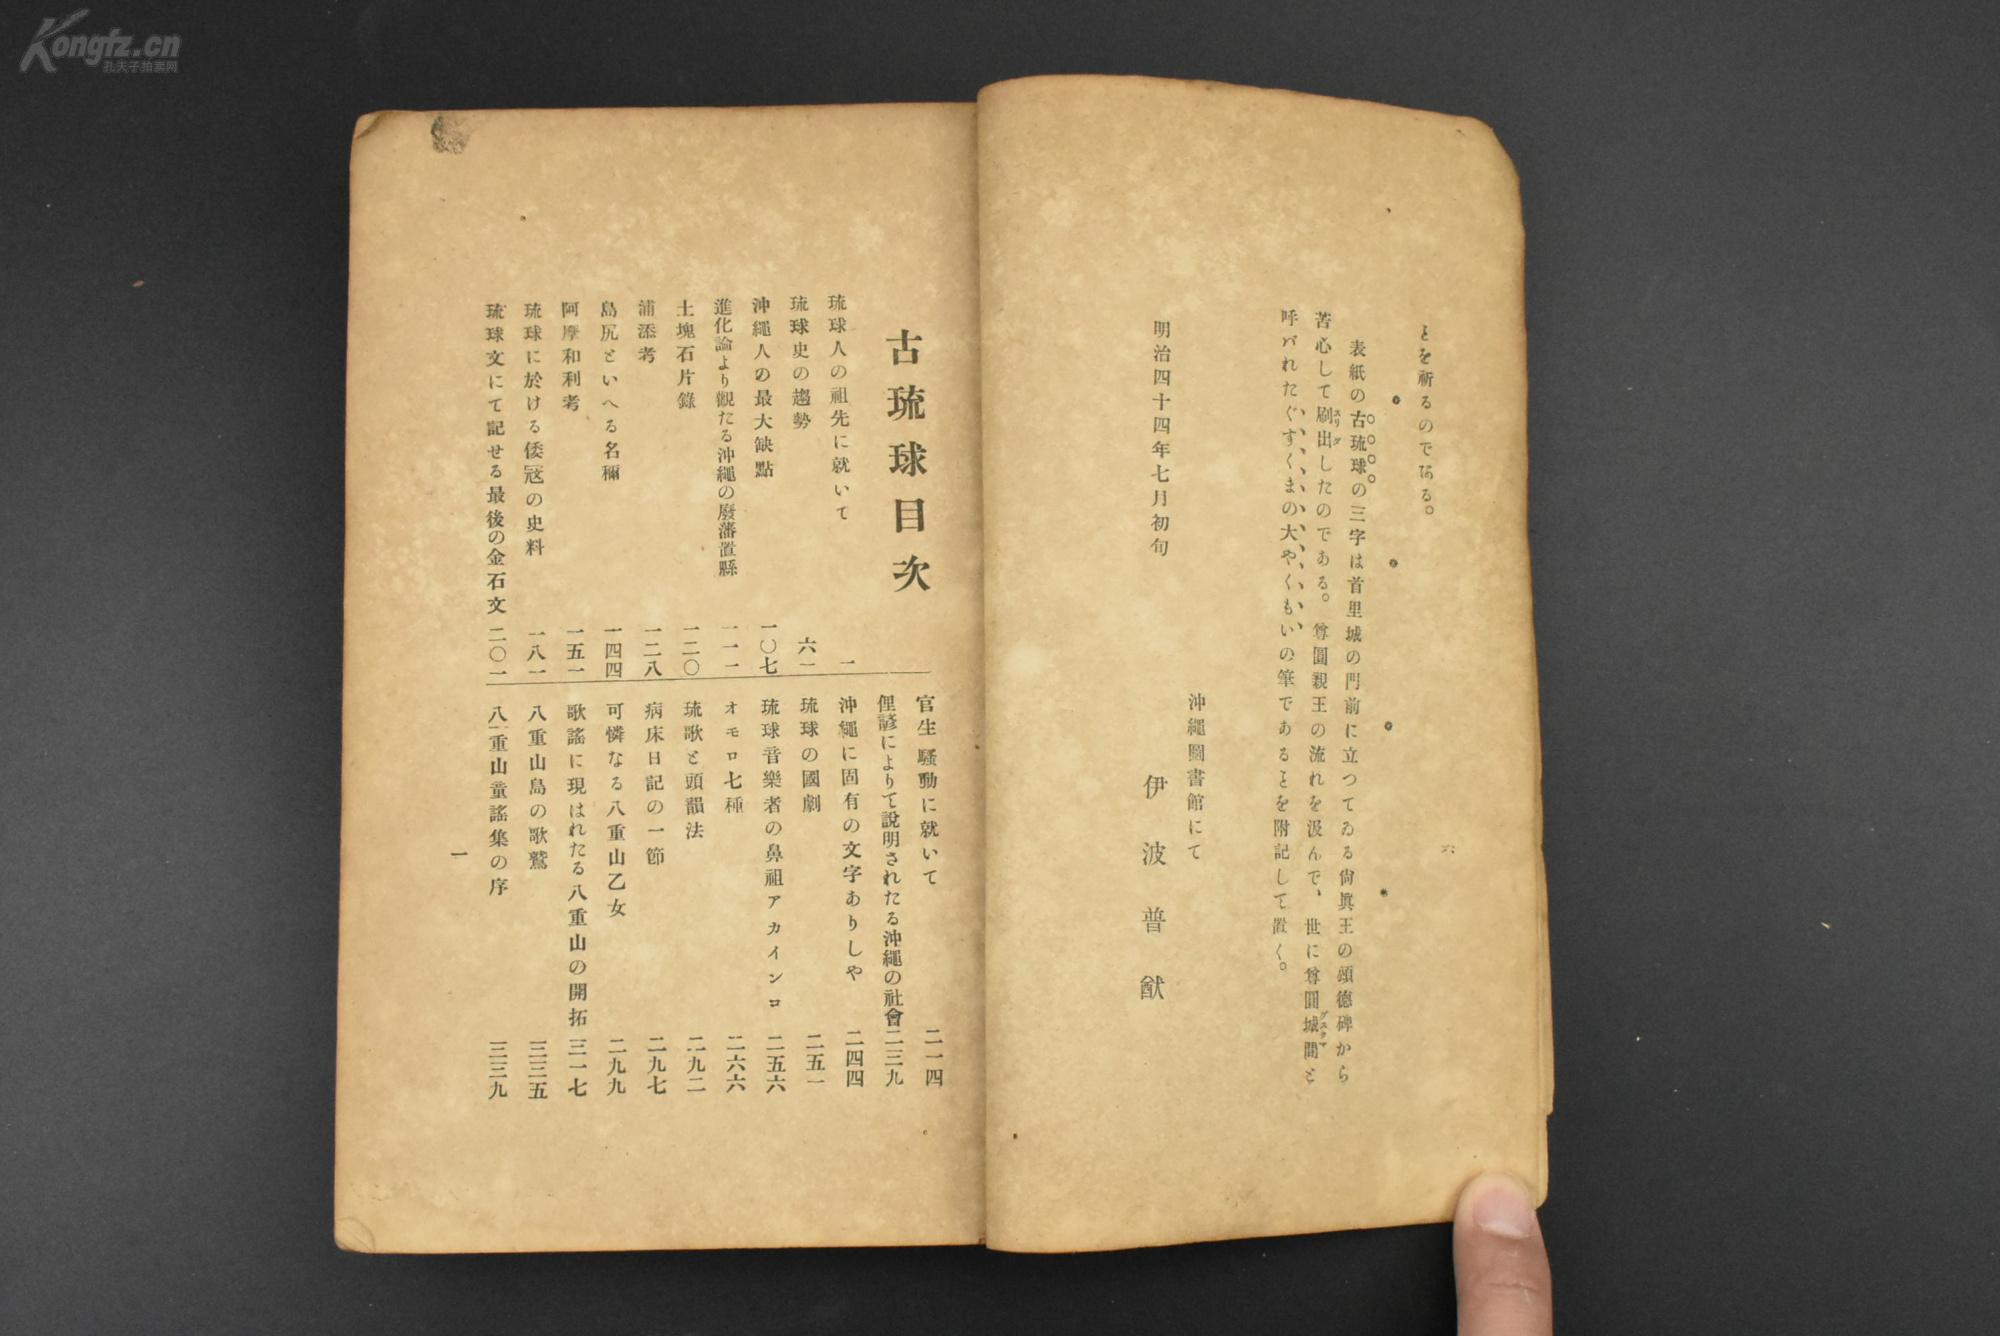 Kongfz.cn
孔夫子拍卖网
六
とを祈るのである。
表紙の古琉球の三字は首里城の門前に立つてゐる尙眞王の頌德碑から
苦心して刷出したのである。尊圓親王の流れを汲んで、世に尊圓城間と
スリダ
グスクマ
呼バれたぐすくまの大やくもいの筆であることを附記して置く。
明治四十四年七月初旬
沖繩圖書館にて
伊波普猷
古琉球目次
琉球人の祖先に就いて 一
琉球史の趨勢 六一
沖繩人の最大缺點 一〇七
進化論より觀たる沖繩の廢藩置縣 一一一
土塊石片錄 一二〇
浦添考 一二八
島尻といへる名稱 一四四
阿摩和利考 一五一
琉球に於ける倭寇の史料 一八一
琉球文にて記せる最後の金石文 二〇一
官生騷動に就いて 二一四
俚諺によりて說明されたる沖繩の社會 二三九
沖繩に固有の文字ありしや 二四四
琉球の國劇 二五一
琉球音樂者の鼻祖アカインコ 二五六
オモロ七種 二六六
琉歌と頭韻法 二九二
病床日記の一節 二九七
可憐なる八重山乙女 二九九
歌謠に現はれたる八重山の開拓 三一七
八重山島の歌鷲 三三五
八重山童謠集の序 三三九
一